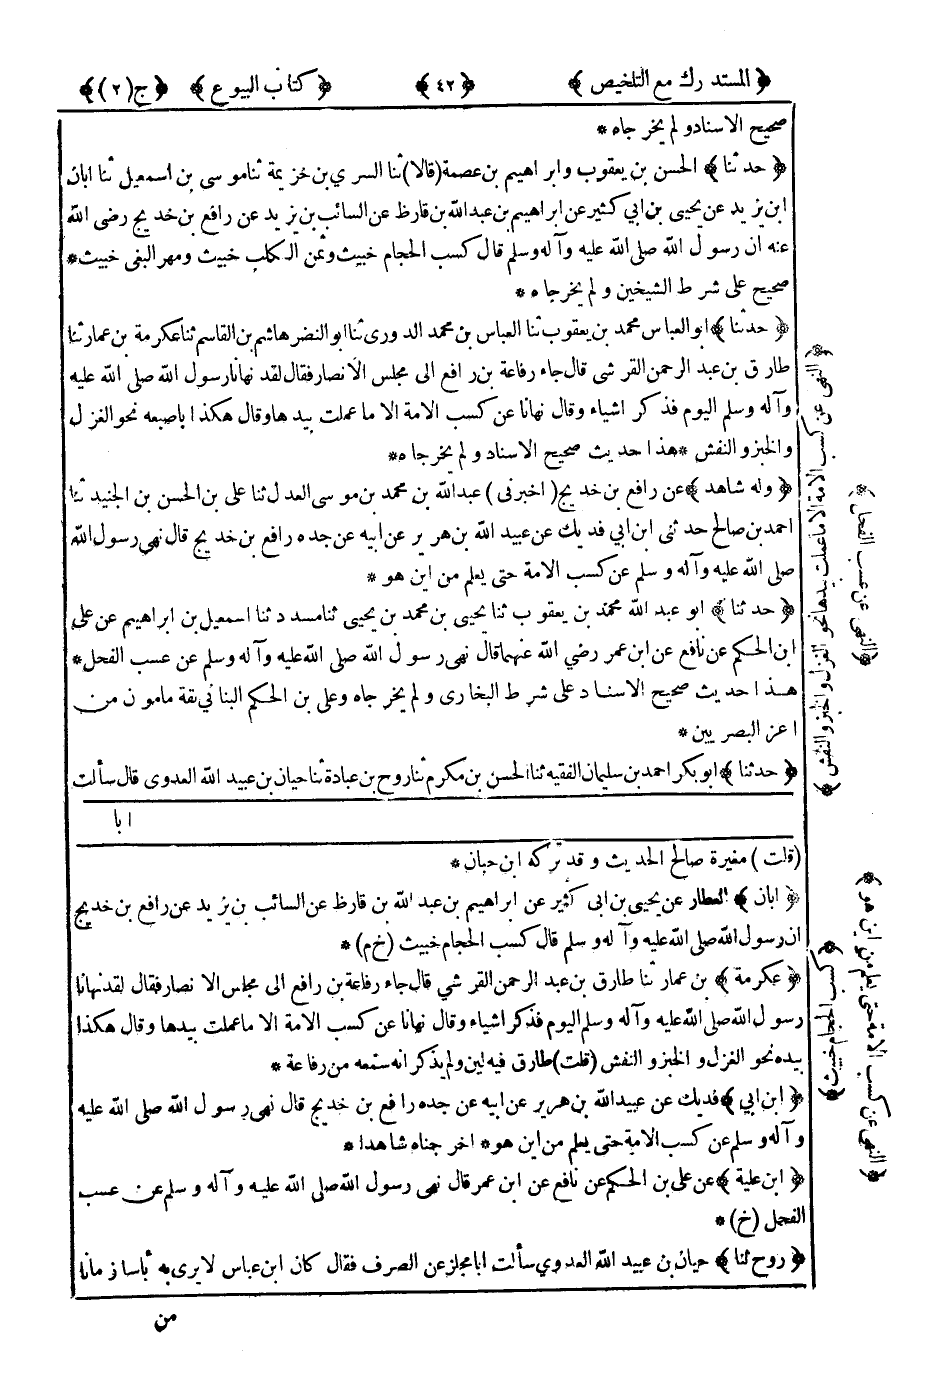 ﴿ المستدرك مع التلخيص ﴾ ﴿ ٤٢ ﴾ ﴿ كتاب البيوع ﴾ ﴿ ج (٢) ﴾
صحيح الاسناد ولم يخرجاه *
﴿ حدثنا ﴾ الحسن بن يعقوب وابراهيم بن عصمة (قالا) ثنا السري بن خزيمة ثنا موسى بن اسمعيل ثنا ابان
ابن يزيد عن يحيى بن ابي كثير عن ابراهيم بن عبد الله بن قارظ عن السائب بن يزيد عن رافع بن خديج رضى الله
عنه ان رسول الله صلى الله عليه وآله وسلم قال كسب الحجام خبيث وثمن الكلب خبيث ومهر البغى خبيث *
صحيح على شرط الشيخين ولم يخرجاه *
﴿ حدثنا ﴾ ابو العباس محمد بن يعقوب ثنا العباس بن محمد الدورى ثنا ابو النضر هاشم بن القاسم ثنا عكرمة بن عمار ثنا
طارق بن عبد الرحمن القرشى قال جاء رفاعة بن رافع الى مجلس الانصار فقال لقد نهانا رسول الله صلى الله عليه
وآله وسلم اليوم فذكر اشياء وقال نهانا عن كسب الامة الا ما عملت بيدها وقال هكذا باصبعه نحو الغزل
والخبز و النفش * هذا حديث صحيح الاسناد ولم يخرجاه *
﴿ وله شاهد ﴾ عن رافع بن خديج (اخبرنى) عبد الله بن محمد بن موسى العدل ثنا على بن الحسن بن الجنيد ثنا
احمد بن صالح حدثنى ابن ابي فديك عن عبيد الله بن هرير عن ابيه عن جده رافع بن خديج قال نهى رسول الله
صلى الله عليه وآله وسلم عن كسب الامة حتى يعلم من اين هو *
﴿ حدثنا ﴾ ابو عبد الله محمد بن يعقوب ثنا يحيى بن محمد بن يحيى ثنا مسدد ثنا اسمعيل بن ابراهيم عن على
ابن الحكم عن نافع عن ابن عمر رضي الله عنهما قال نهى رسول الله صلى الله عليه وآله وسلم عن عسب الفحل *
هذا حديث صحيح الاسناد على شرط البخارى ولم يخرجاه وعلى بن الحكم البناني ثقة مامون من
اعز البصريين *
﴿ حدثنا ﴾ ابو بكر احمد بن سليمان الفقيه ثنا الحسن بن مكرم ثنا روح بن عبادة ثنا حيان بن عبيد الله العدوى قال سألت
ابا
(قلت) مغيرة صالح الحديث وقد تركه ابن حبان *
﴿ ابان ﴾ العطار عن يحيى بن ابى كثير عن ابراهيم بن عبد الله بن قارظ عن السائب بن يزيد عن رافع بن خديج
ان رسول الله صلى الله عليه وآله وسلم قال كسب الحجام خبيث (خ م) *
﴿ عكرمة ﴾ بن عمار ثنا طارق بن عبد الرحمن القرشي قال جاء رفاعة بن رافع الى مجلس الانصار فقال لقد نهانا
رسول الله صلى الله عليه وآله وسلم اليوم فذكر اشياء وقال نهانا عن كسب الامة الا ما عملت بيدها وقال هكذا
بيده نحو الغزل و الخبز و النفش (قلت) طارق فيه لين ولم يذكر انه سمعه من رفاعة *
﴿ ابن ابي ﴾ فديك عن عبيد الله بن هرير عن ابيه عن جده رافع بن خديج قال نهى رسول الله صلى الله عليه
وآله وسلم عن كسب الامة حتى يعلم من اين هو * اخرجناه شاهدا *
﴿ ابن علية ﴾ عن على بن الحكم عن نافع عن ابن عمر قال نهى رسول الله صلى الله عليه وآله وسلم عن عسب
الفحل (خ) *
﴿ روح ثنا ﴾ حيان بن عبيد الله العدوي سألت ابا مجلز عن الصرف فقال كان ابن عباس لا يرى به بأسا زمانا
من
﴿ النهى عن كسب الامة الا ما عملت بيدها نحو الغزل و الخبز و النفش ﴾
﴿ النهى عن عسب الفحل ﴾
﴿ كسب الحجام خبيث ﴾
﴿ النهى عن كسب الامة حتى يعلم من اين هو ﴾